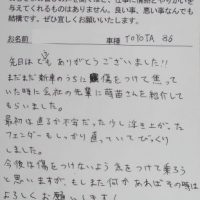 与えてくれるものはありません。良い事、悪い事なんでも
結構です。ぜひ宜しくお願いいたします。
お名前
車種 TOYOTA 86
先日は ありがとうございました!!
まだまだ新車のうちに傷をつけて焦って
いた時に会社の先輩に 苗さんを紹介して
もらいました。
最初は直るか不安だった少し浮き上がった
フェンダーもしっかり直っていてびっくり
しました。
今後は傷をつけないよう気をつけて乗ろう
と思いますが、もしまた何かあればその時は
よろしくお願いします!